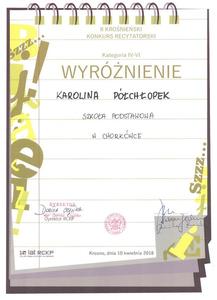 II KROŚNIEŃSKI
KONKURS RECYTATORSKI
Kategoria IV-VI
WYRÓŻNIENIE
KAROLINA PÓŁCHŁOPEK
SZKOŁA PODSTAWOWA
W CHORKÓWCE
DYREKTOR
Dyrektor RCKP
Szzz...
Szzz...
20 lat RCKP
Krosno, dnia 10 kwietnia 2018